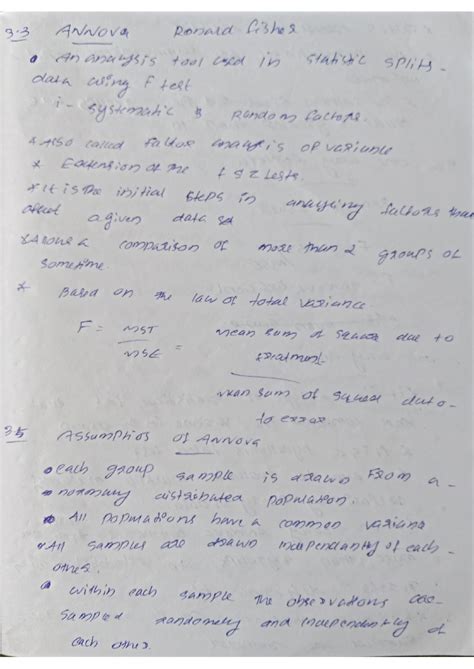 3.3 ANNOVA Ronald Fisher
• An analysis tool used in statistic splits
data using F test
i - systematic & random factors.
* Also called fisher analysis of variance
* Extension of the t & z tests.
* It is the initial steps in analysing factors that
affect a given data set
* Allows a comparison of more than 2 groups at
sometime.
* Based on the law of total variance
F = MST / MSE = Mean sum of square due to
treatment
Mean sum of square due to
to error
3.5 Assumptios of ANNOVA
• each group sample is drawn from a
normally distributed population.
• All populations have a common variance
• All samples are drawn independently of each
other.
• within each sample the observations are
sampled randomely and independently of
each other.